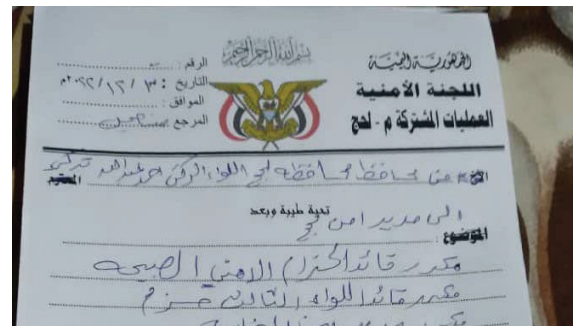 بسم الله الرحمن الرحيم
الجمهورية اليمنية
اللجنة الأمنية
العمليات المشتركة م - لحج
الرقم :
التاريخ : ٣ / ١٢ / ٢٠٢٢م
الموافق :
المرجع :
من محافظ محافظة لحج اللواء الركن احمد عبدالله تركي
تحية طيبة وبعد
الى مدير امن لحج
الموضوع :
مكرر قائد الحزام الامني الصبيحه
مكرر قائد اللواء الثالث حزم